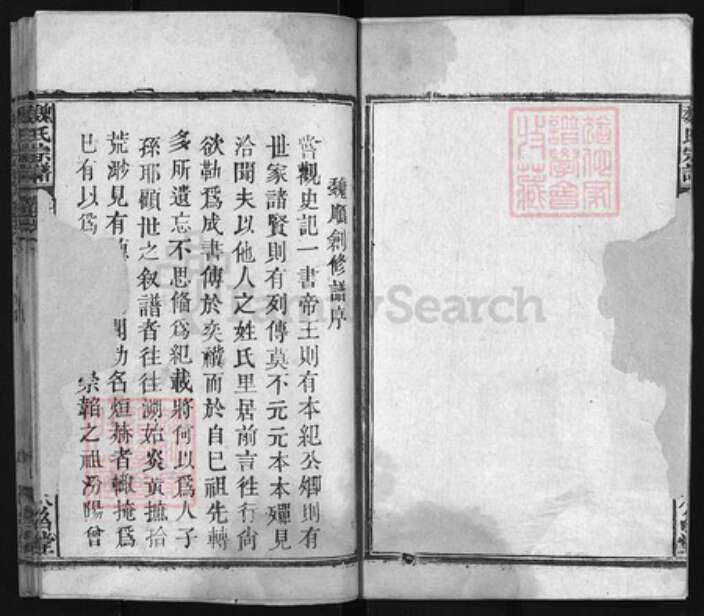 魏氏宗譜
魏順創修譜序
嘗觀史記一書帝王則有本紀公卿則有
世家諸賢則有列傳莫不元元本本殫見
洽聞夫以他人之姓氏里居前言往行尚
欲勒爲成書傳於奕禩而於自巳祖先轉
多所遺忘不思脩爲紀載將何以爲人子
孫耶顧世之敘譜者往往溯始炎黃摭拾
荒渺見有
勛名烜赫者輒掩爲
巳有以爲
崇韜之祖汾陽曾
譜學會
收藏
FamilySearch